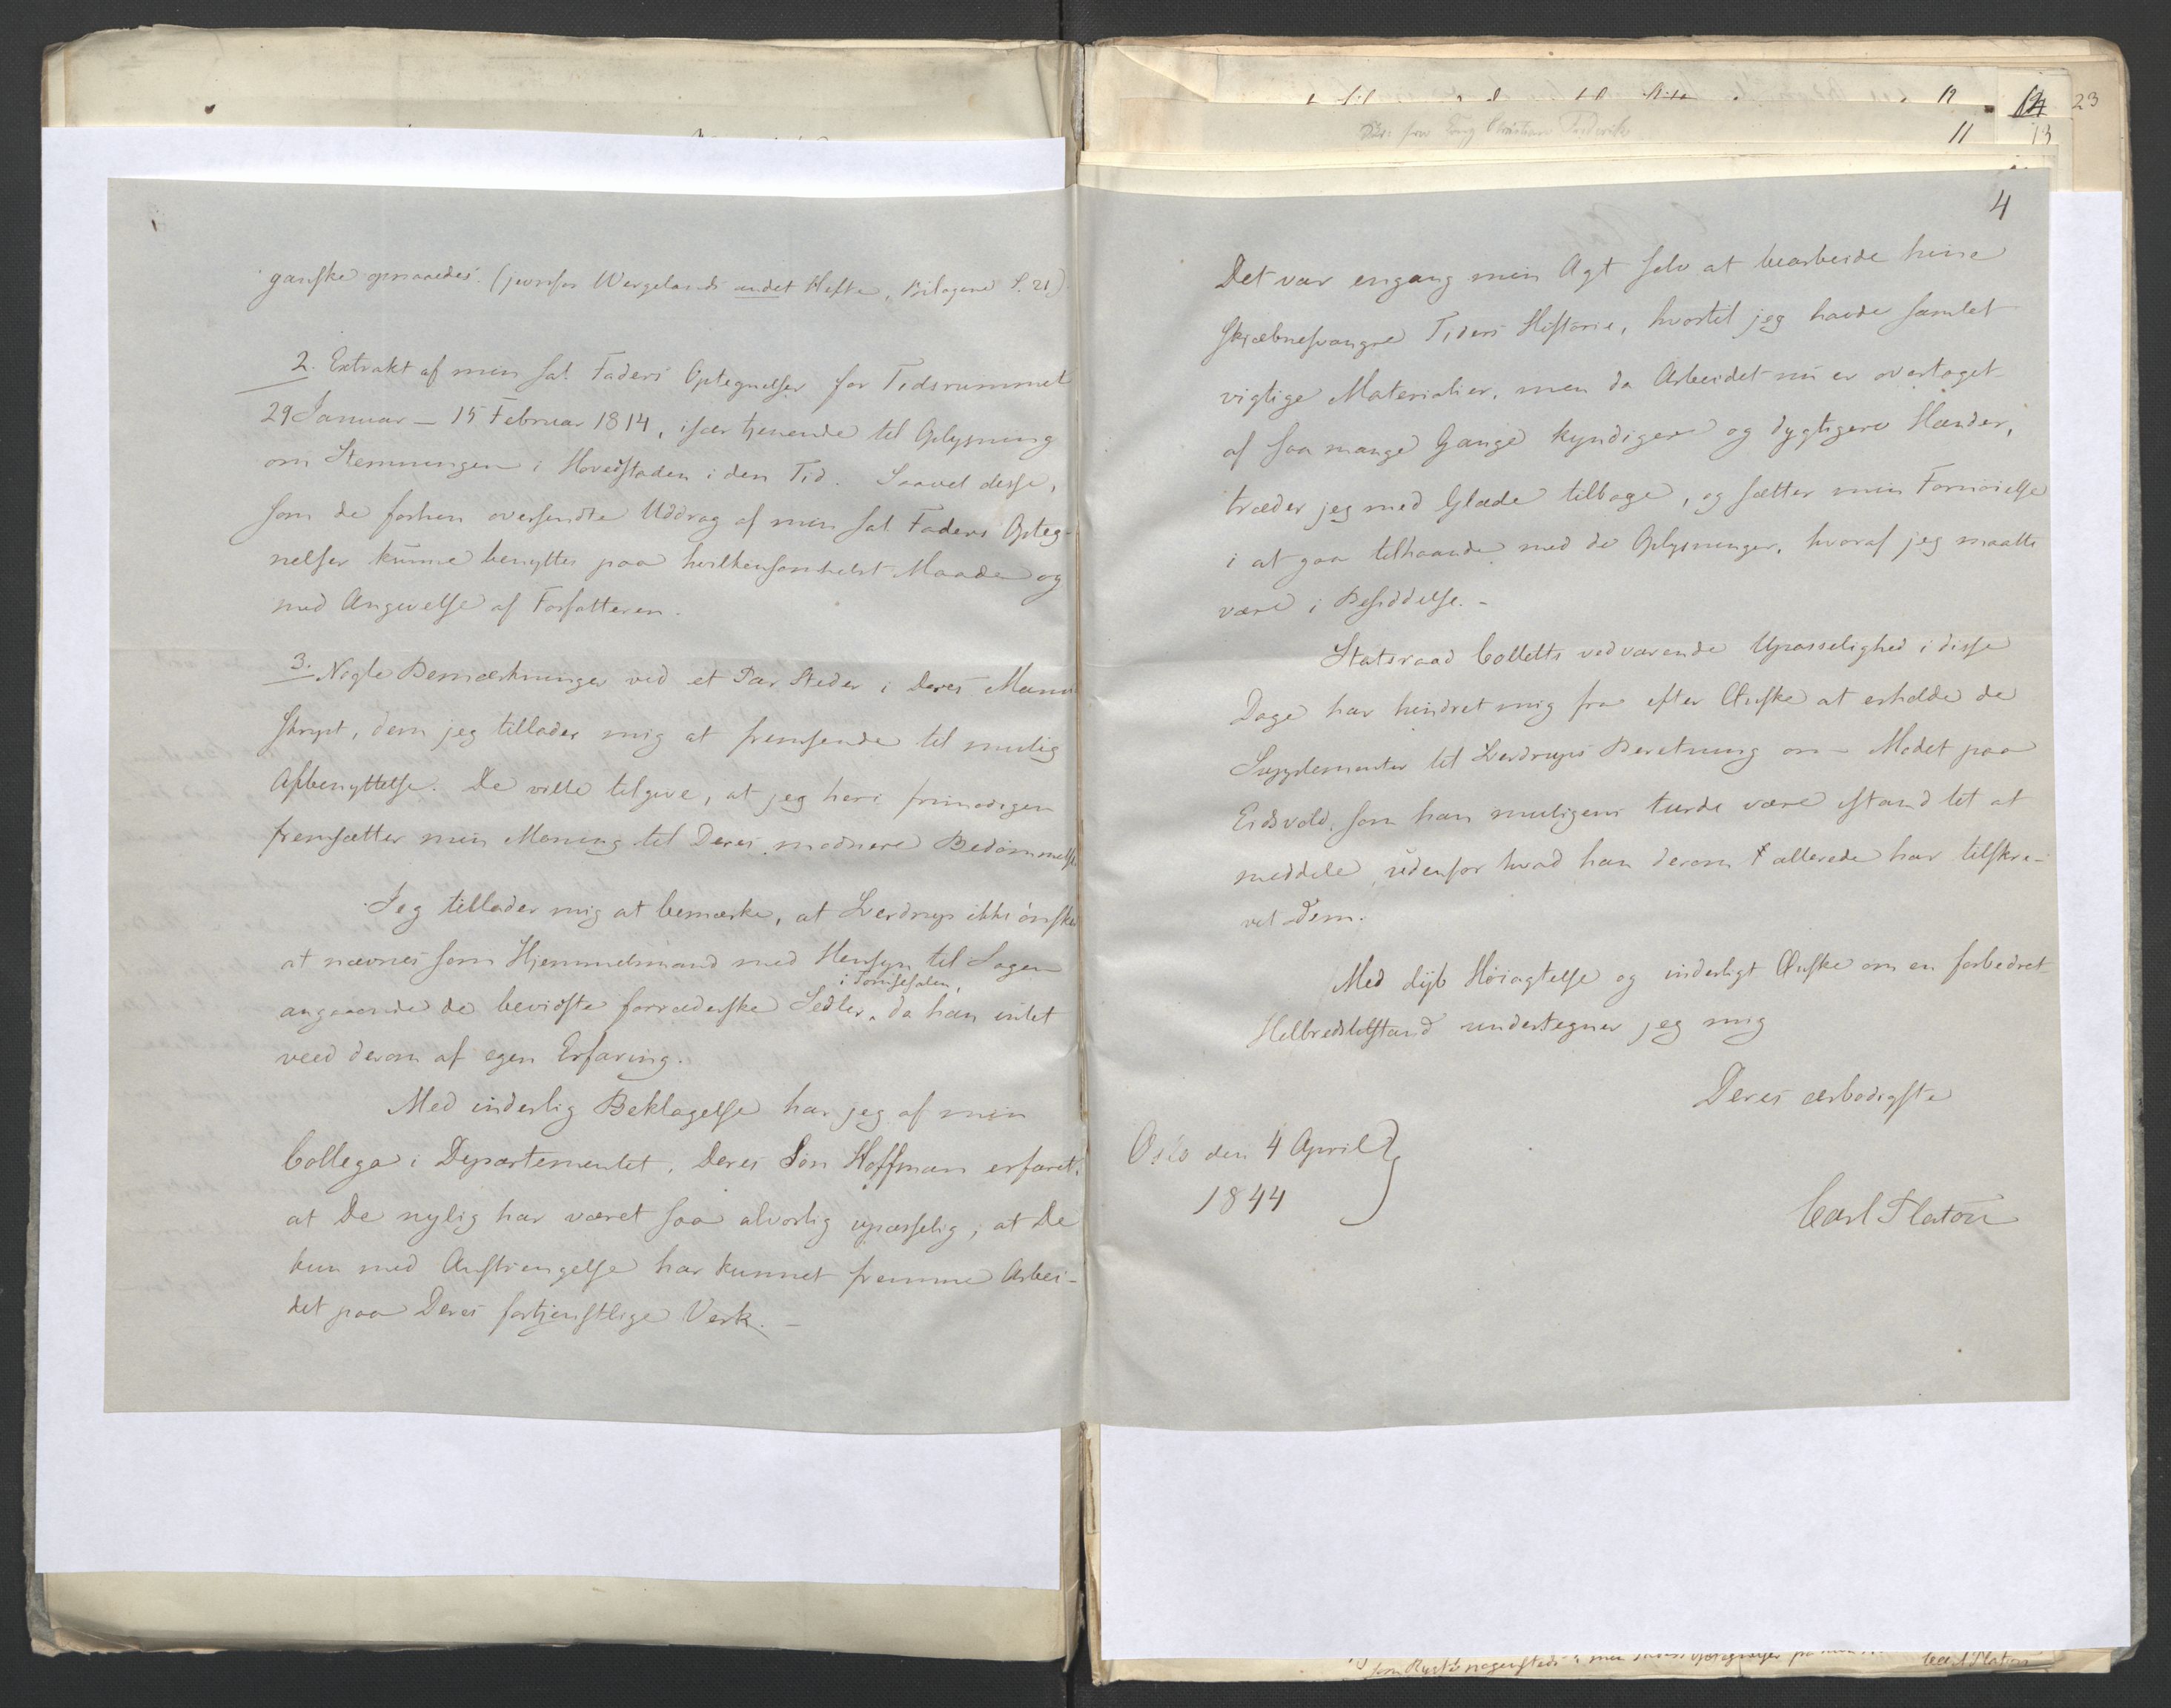 ganske opnaaedes. (jevnfør Wergelands andet Hefte, Bilagene S. 21)
2. Extrakt af min sal. Faders Optegnelser for Tidsrummet
29 Januar – 15 Februar 1814, især tjenende til Oplysning
om Stemningen i Hovedstaden i den Tid. Saavel disse,
som de forhen oversendte Uddrag af min sal. Faders Opteg-
nelser kunne benyttes paa hvilkensomhelst Maade og
med Angivelse af Forfatteren.
3. Nogle Bemærkninger ved et Par Steder i Deres Manu
skript, dem jeg tillader mig at fremsende til mulig
Afbenyttelse. De ville tilgive, at jeg heri frimodigen
fremsætter min Mening til Deres modnere Bedømmelse
Jeg tillader mig at bemærke, at Sverdrup ikke ønsker
at nævnes som Hjemmelsmand med Hensyn til Sagen
i Tornesalen,
angaaende de bevidste forræderske Sedler, da han intet
veed derom af egen Erfaring.
Med inderlig Beklagelse har jeg af min
Collega i Departementet, Deres Søn Hoffman erfaret,
at De nylig har været saa alvorlig upasselig, at De
kun med Anstrengelse har kunnet fremme Arbei-
det paa Deres fortjenstlige Verk. –
12
14
23
11
13
4
Det var engang min Agt selv at bearbeide hine
skjæbnesvangre Tiders Historie, hvortil jeg havde samlet
vigtige Materialier, men da Arbeidet nu er overtaget
af saa mange Gange kyndigere og dygtigere Hænder,
træder jeg med Glæde tilbage, og sætter min Fornøielse
i at gaa tilhaande med de Oplysninger, hvoraf jeg maatte
være i Besiddelse. –
Statsraad Colletts vedvarende Upasselighed i disse
Dage har hindret mig fra efter Ønske at erholde de
Supplementer til Sverdrups Beretning om Mødet paa
Eidsvold, som han muligens turde være istand til at
meddele, udenfor hvad han derom allerede har tilskre-
vet Dem.
Med dyb Høiagtelse og inderligt Ønske om en forbedret
Helbredstilstand undertegner jeg mig
Deres ærbødigste
Oslo den 4 April
1844
Carl Platou
Carl Platou